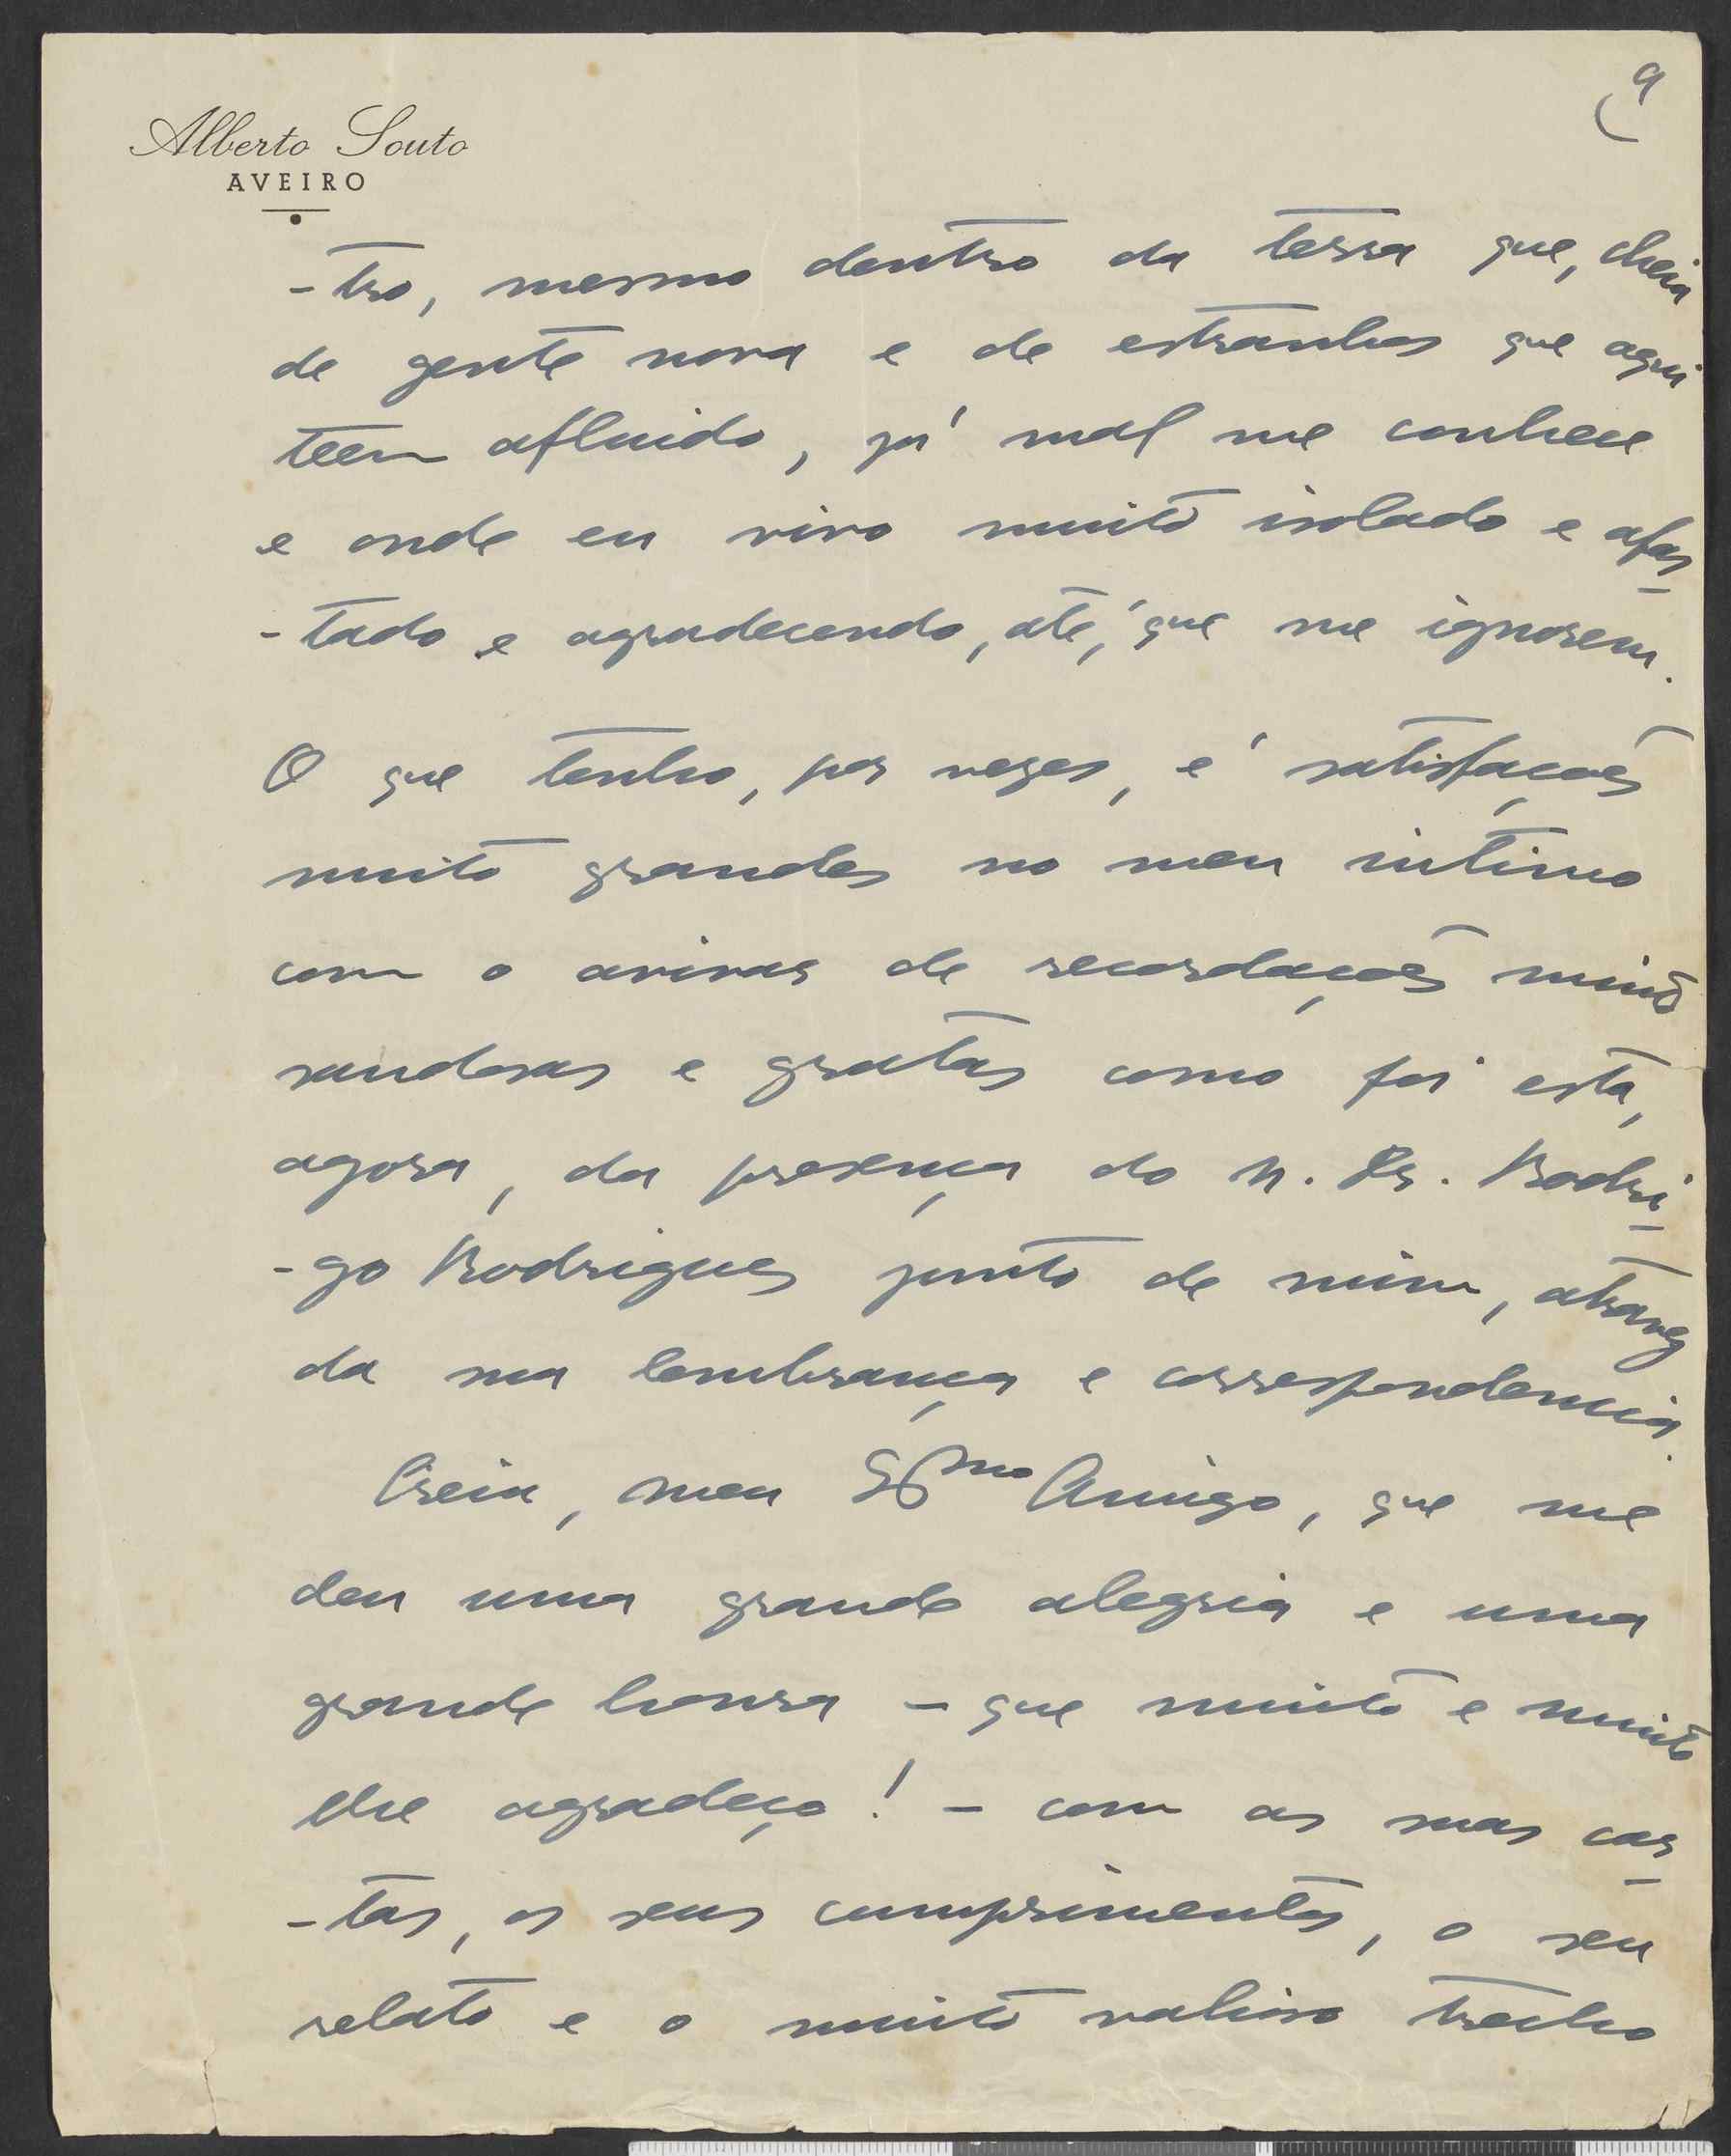 9
Alberto Souto
AVEIRO
-tro, mesmo dentro da terra que, cheia
de gente nova e de estranhos que aqui
teem afluido, já mal me conhece
e onde eu vivo muito isolado e afas-
-tado e agradecendo, até, que me ignorem.
O que tenho, por vezes, é satisfações
muito grandes no meu intimo
com o avivar de recordações muito
saudosas e gratas como foi esta,
agora, da presença do Sr. Dr. Rodri-
-go Rodrigues junto de mim, atravez
da sua lembrança e correspondencia.
Creia, meu Exmo Amigo, que me
deu uma grande alegria e uma
grande honra - que muito e muito
lhe agradeço! - com as suas car-
-tas, os seus cumprimentos, o seu
relato e o muito valioso trecho